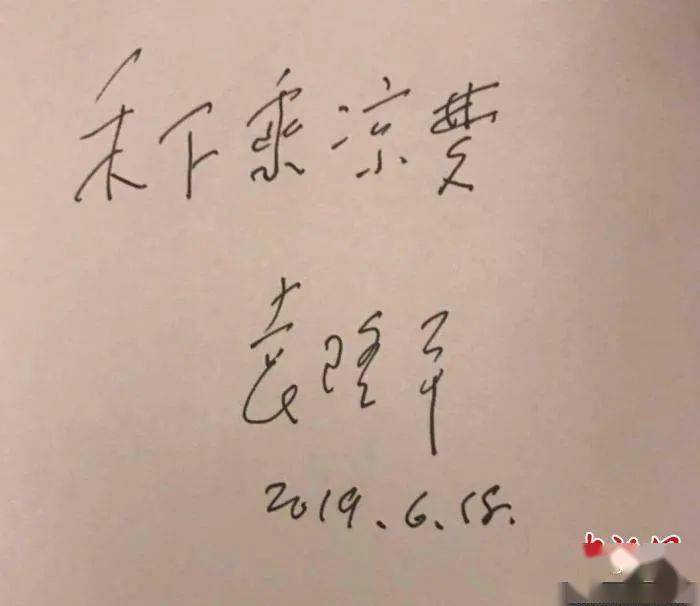 禾下乘凉夢
袁隆平
2019.6.18.